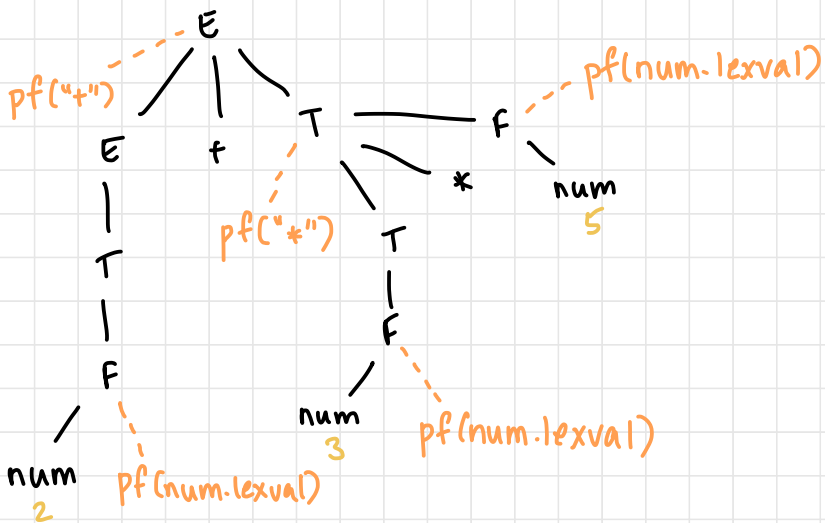 E
pf("+")
pf(num.lexval)
E
+
T
F
*
num
5
pf("*")
T
T
F
F
num
3
pf(num.lexval)
num
2
pf(num.lexval)